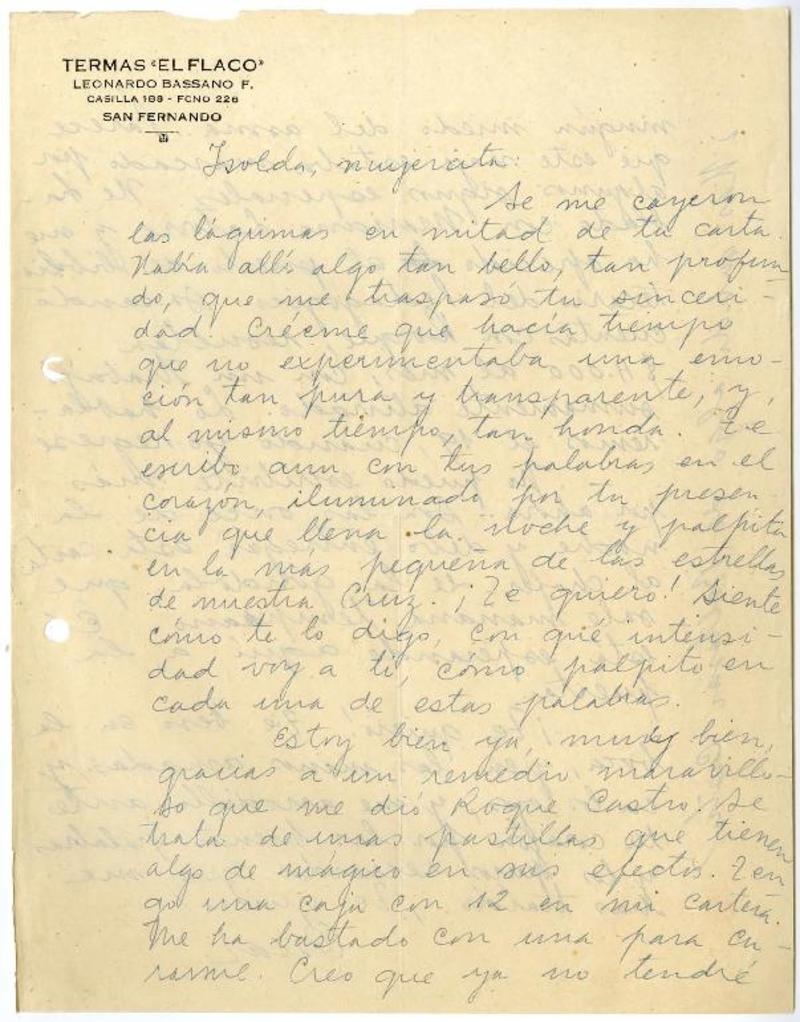 TERMAS "EL FLACO"
LEONARDO BASSANO F.
CASILLA 188 - FONO 226
SAN FERNANDO
Isolda, mujercita:
Se me cayeron
las lágrimas en mitad de tu carta.
Había allí algo tan bello, tan profun
do, que me traspasó tu sinceri-
dad. Créeme que hacía tiempo
que no experimentaba una emo-
ción tan pura y transparente, y,
al mismo tiempo, tan honda. Te
escribo aun con tus palabras en el
corazón, iluminado por tu presen-
cia que llena la noche y palpita
en la más pequeña de las estrellas
de nuestra Cruz. ¡Te quiero! Siente
cómo te lo digo, con que intensi-
dad voy a ti, cómo palpito en
cada una de estas palabras.
Estoy bien ya, muy bien,
gracias a un remedio maravillo-
so que me dió Roque Castro. Se
trata de unas pastillas que tienen
algo de mágico en sus efectos. Ten
go una caja con 12 en mi cartera.
Me ha bastado con una para cu-
rarme. Creo que ya no tendré